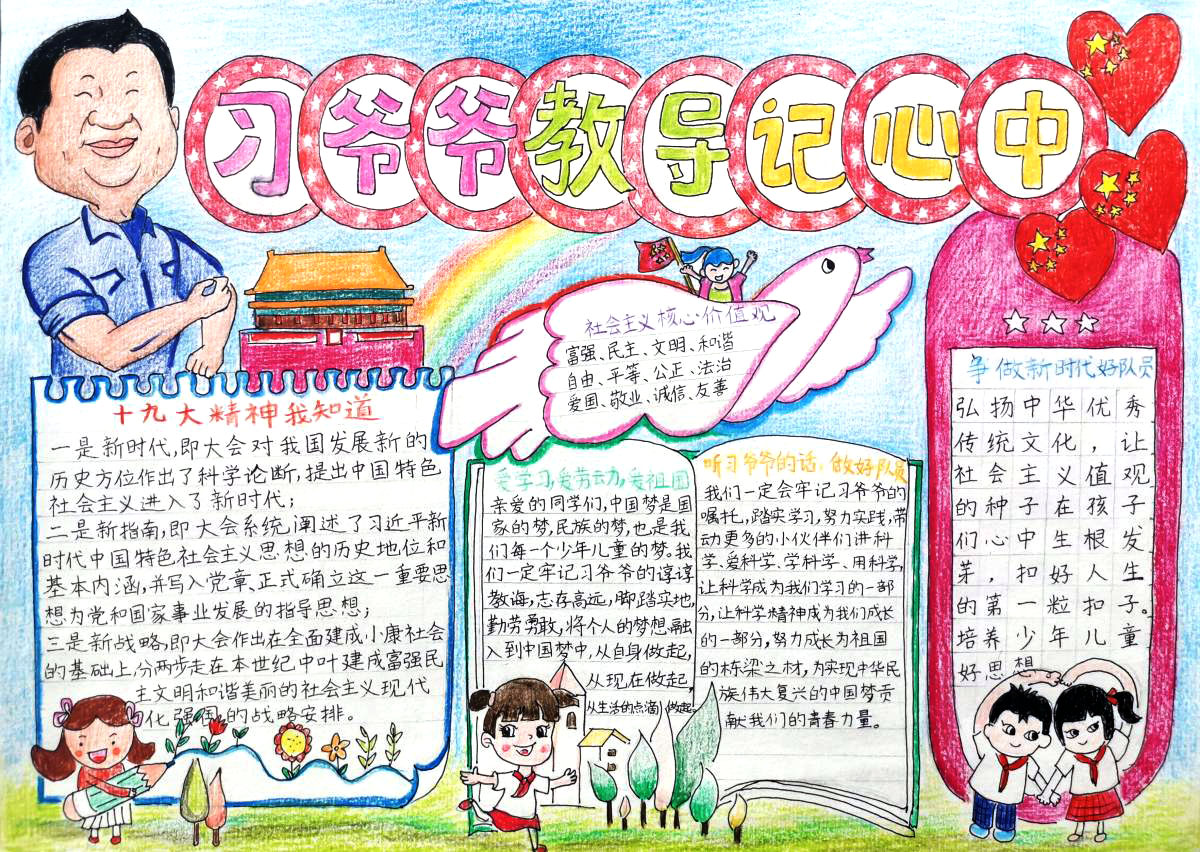 习爷爷教导记心中
社会主义核心价值观
富强、民主、文明、和谐
自由、平等、公正、法治
爱国、敬业、诚信、友善
十九大精神我知道
一是新时代,即大会对我国发展新的
历史方位作出了科学论断,提出中国特色
社会主义进入了新时代;
二是新指南,即大会系统阐述了习近平新
时代中国特色社会主义思想的历史地位和
基本内涵,并写入党章,正式确立这一重要思
想为党和国家事业发展的指导思想;
三是新战略,即大会作出在全面建成小康社会
的基础上,分两步走在本世纪中叶建成富强民
主文明和谐美丽的社会主义现代
化强国的战略安排。
爱学习,爱劳动,爱祖国
亲爱的同学们,中国梦是国
家的梦,民族的梦,也是我
们每一个少年儿童的梦。我
们一定牢记习爷爷的谆谆
教诲,志存高远,脚踏实地,
勤劳勇敢,将个人的梦想融
入到中国梦中,从自身做起,
从现在做起,
从生活的点滴做起。
听习爷爷的话,做好队员
我们一定会牢记习爷爷的
嘱托,踏实学习,努力实践,带
动更多的小伙伴们讲科
学、爱科学、学科学、用科学,
让科学成为我们学习的一部
分,让科学精神成为我们成长
的一部分,努力成长为祖国
的栋梁之材,为实现中华民
族伟大复兴的中国梦贡
献我们的青春力量。
争做新时代好队员
弘扬中华优秀
传统文化,让
社会主义价值观
的种子在孩子
们心中生根发
芽,扣好人生
的第一粒扣子。
培养少年儿童
好思想